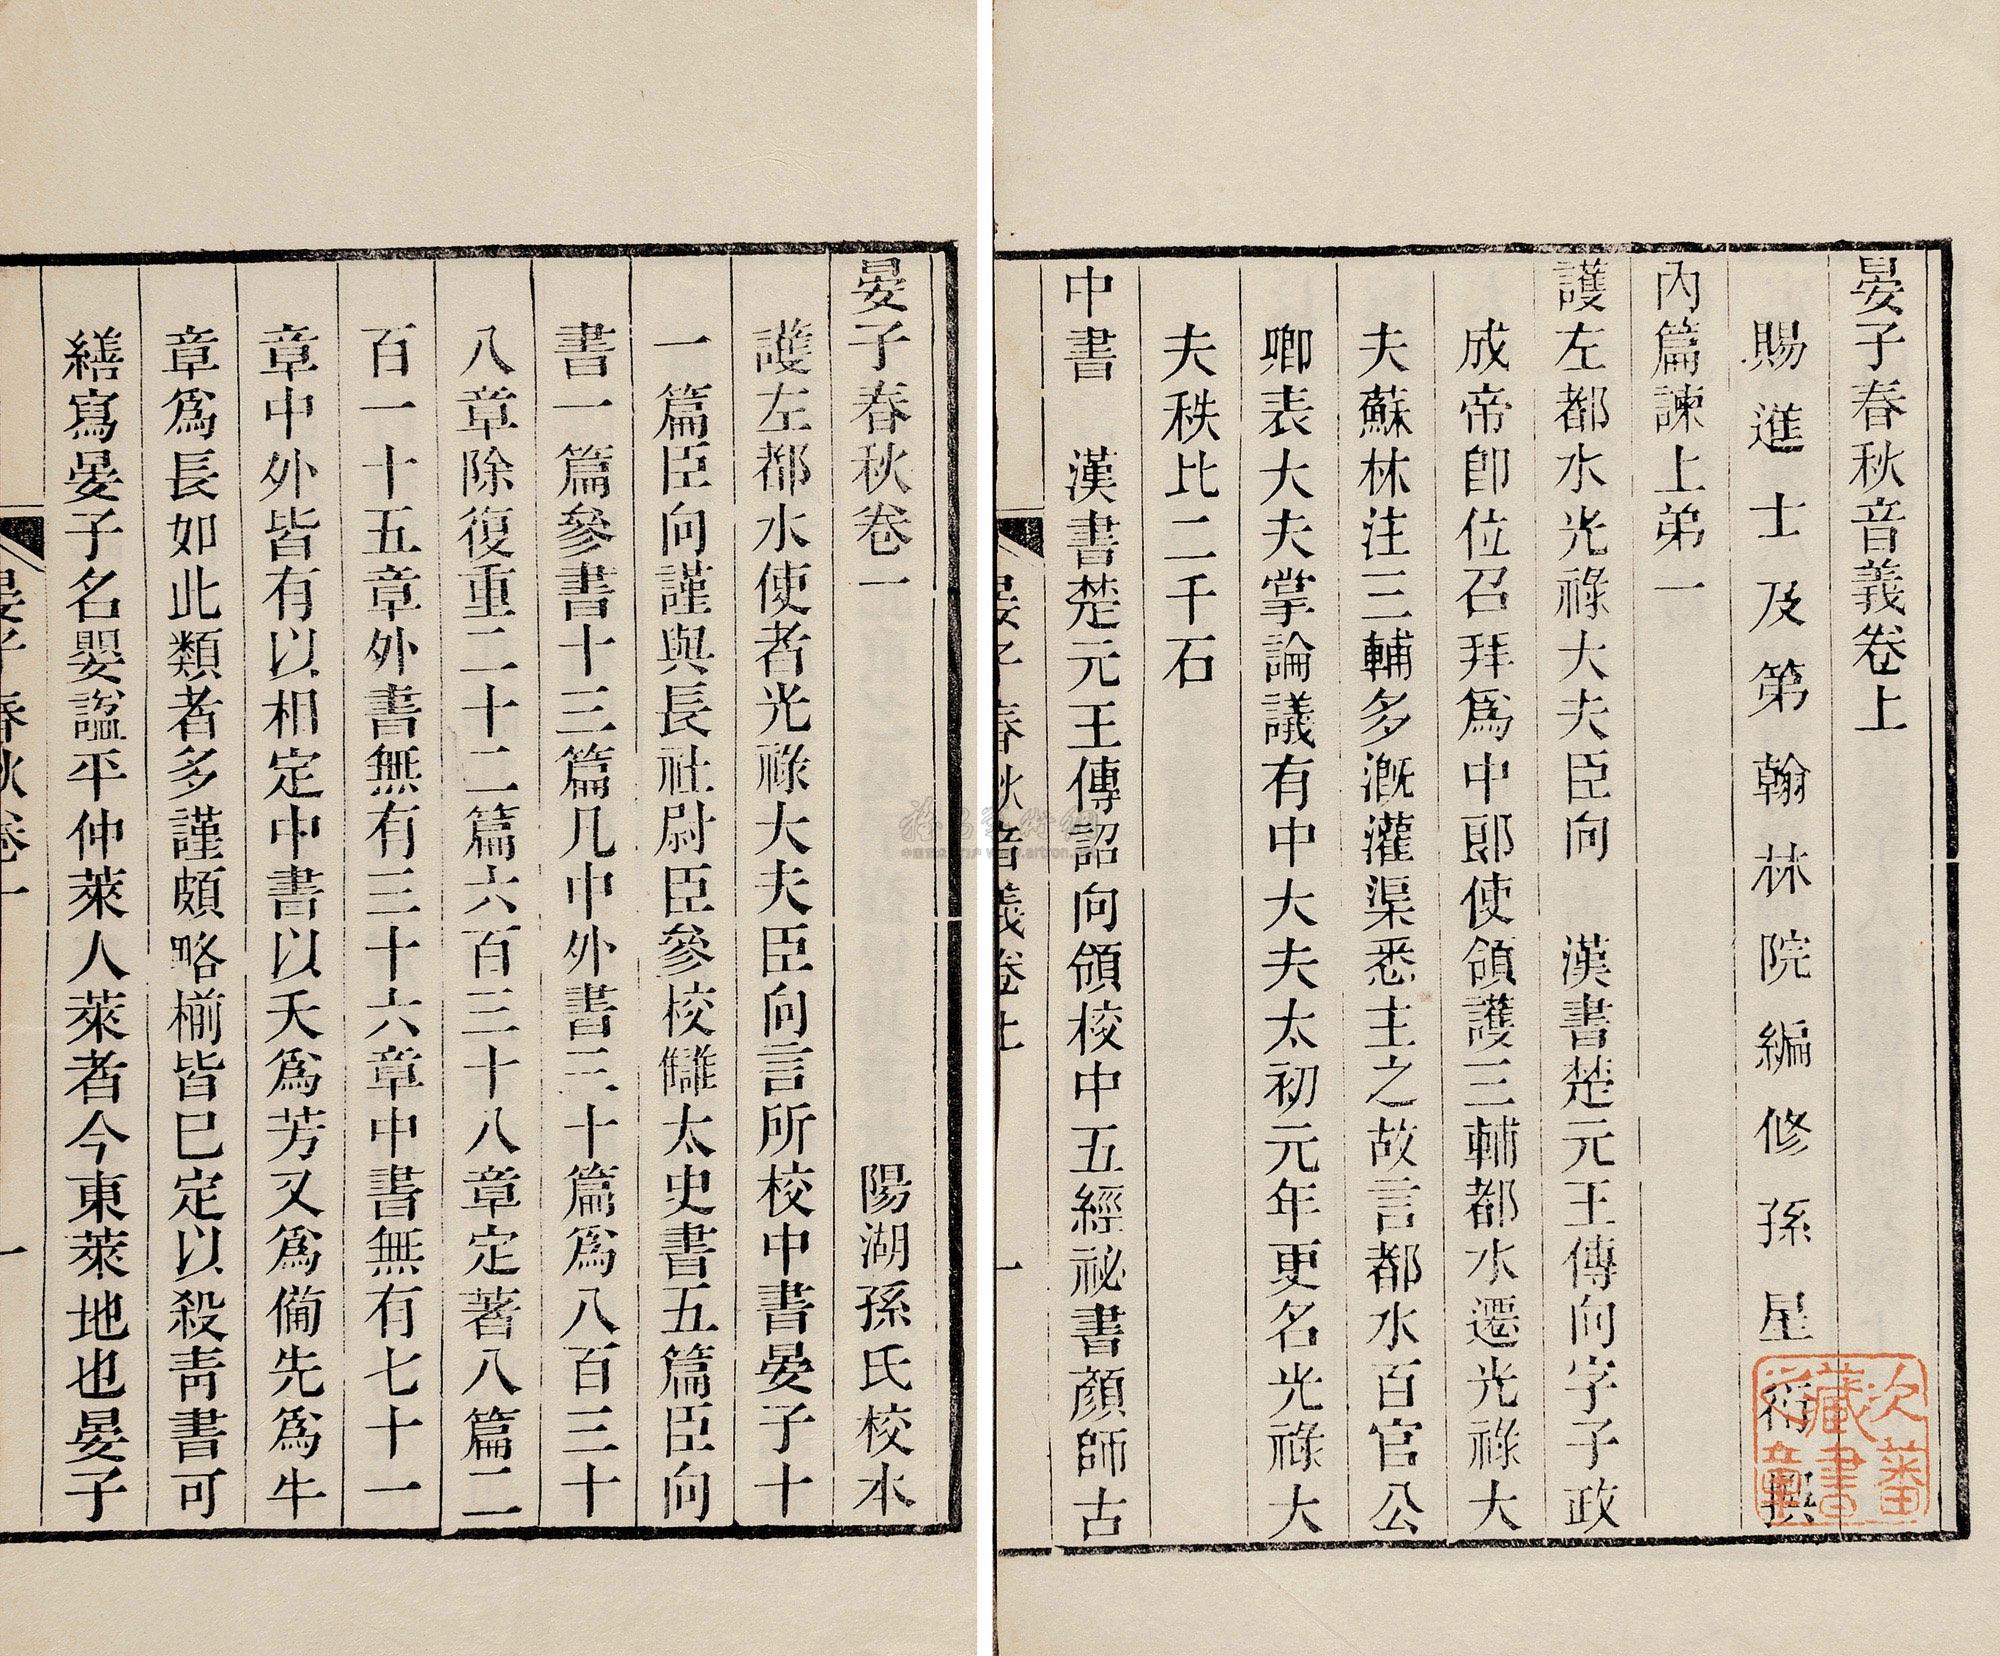 晏子春秋音義卷上
賜進士及第翰林院編修孫星衍撰
內篇諫上弟一
護左都水光祿大夫臣向　漢書楚元王傳向字子政
成帝卽位召拜爲中郎使領護三輔都水遷光祿大
夫蘇林注三輔多溉灌渠悉主之故言都水百官公
卿表大夫掌論議有中大夫太初元年更名光祿大
夫秩比二千石
中書　漢書楚元王傳詔向領校中五經祕書顏師古
晏子春秋音義卷上
一
次藩藏書之章
晏子春秋卷一　陽湖孫氏校本
護左都水使者光祿大夫臣向言所校中書晏子十
一篇臣向謹與長社尉臣參校讎太史書五篇臣向
書一篇參書十三篇凡中外書三十篇爲八百三十
八章除復重二十二篇六百三十八章定著八篇二
百一十五章外書無有三十六章中書無有七十一
章中外皆有以相定中書以夭爲芳又爲備先爲牛
章爲長如此類者多謹頗略椾皆已定以殺靑書可
繕寫晏子名嬰諡平仲萊人萊者今東萊地也晏子
晏子春秋卷一
一
www.artron.net